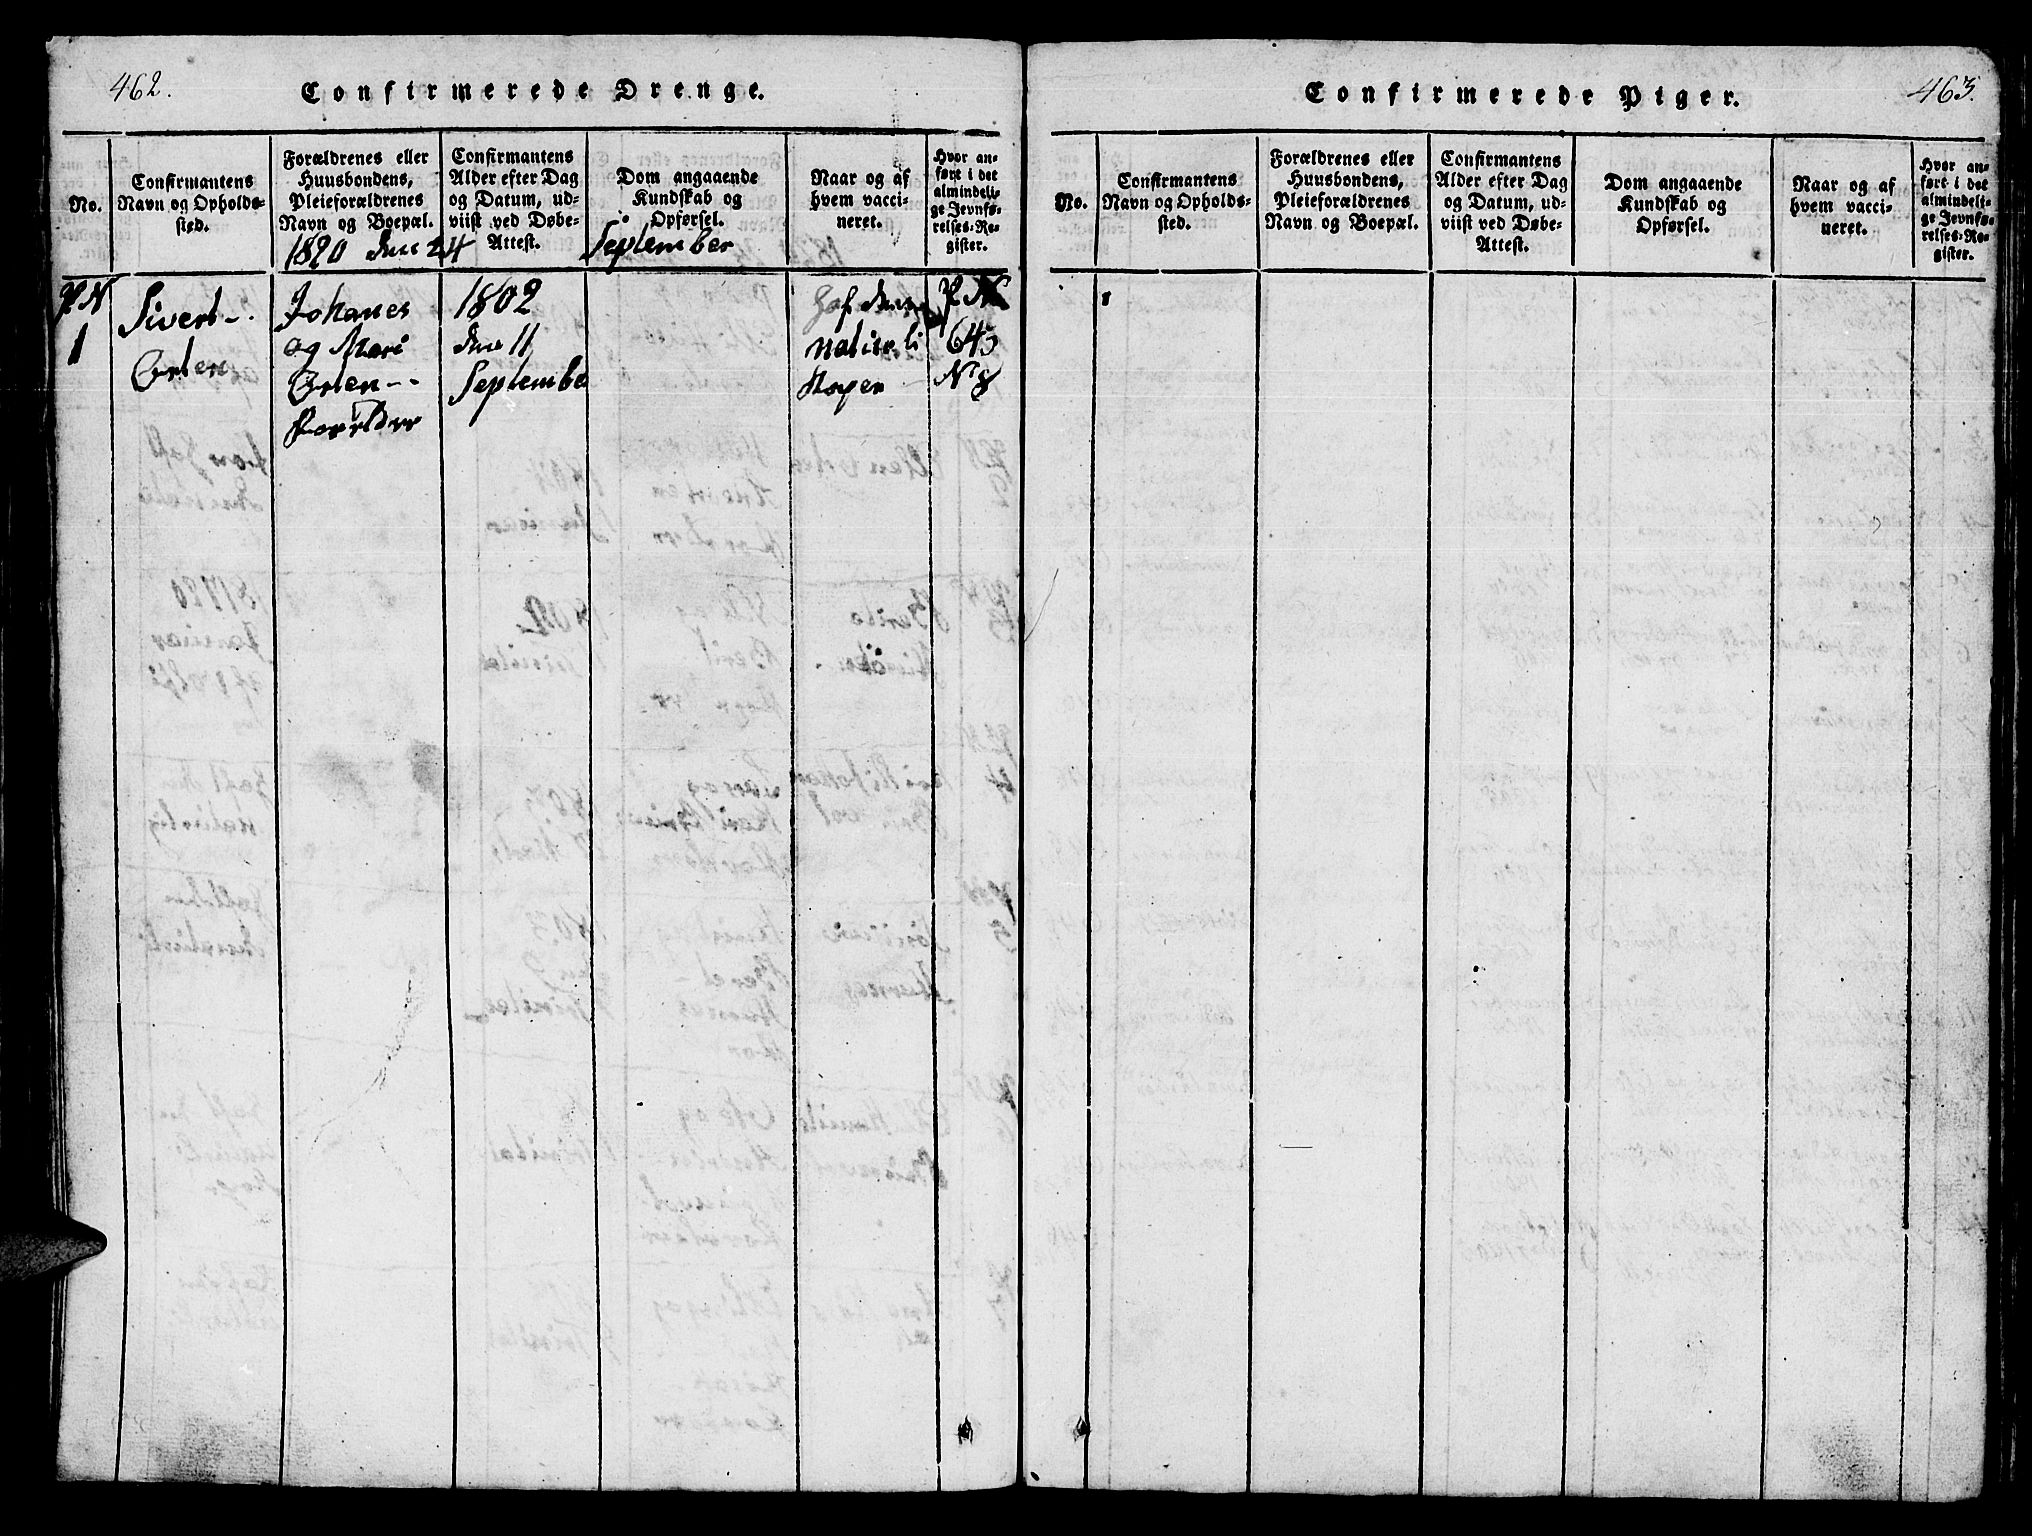 462.
Confirmerede Drenge.
No.
Confirmantens
Navn og Opholds-
sted.
Forældrenes eller
Huusbondens,
Pleieforældrenes
Navn og Boepæl.
Confirmantens
Alder efter Dag
og Datum, ud-
viist ved Døbe-
Attest.
Dom angaaende
Kundskab og
Opførsel.
Naar og af
hvem vacci-
neret.
Hvor an-
ført i det
almindeli-
ge Jevnfø-
relses-Re-
gister.
1820 den 24 September
1
Sivert
Orten
Johanes
og Mari
Orten
1802
den 11
September
Haf den
naturli
Koper
645
N 8
463.
Confirmerede Piger.
No.
Confirmantens
Navn og Opholds-
sted.
Forældrenes eller
Huusbondens,
Pleieforældrenes
Navn og Boepæl.
Confirmantens
Alder efter Dag
og Datum, ud-
viist ved Døbe-
Attest.
Dom angaaende
Kundskab og
Opførsel.
Naar og af
hvem vacci-
neret.
Hvor an-
ført i det
almindeli-
ge Jevnfø-
relses-Re-
gister.